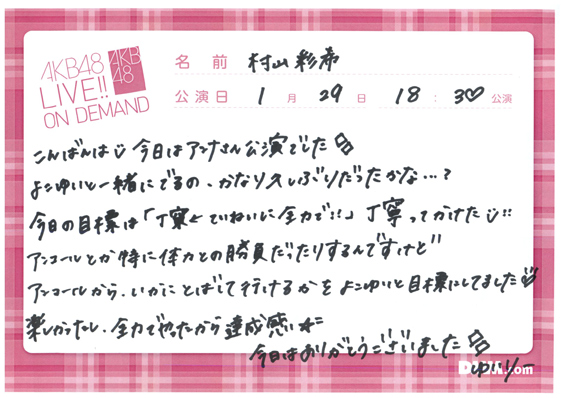 AKB48
LIVE!!
ON DEMAND
AKB
48
名前 村山彩希
公演日 1月29日 18:30公演
こんばんは 今日はアンナさん公演でした
よこゆいと一緒にでるの、かなり久しぶりだったかな…?
今日の目標は「丁寧←ていねいに全力で!!」丁寧ってかけた!!
アンコールとか特に体力との勝負だったりするんですけど
アンコールから、いかにとばして行けるかをよこゆいと目標にしてました
楽しかったし、全力でやったから達成感
今日はありがとうございました
DMM.com